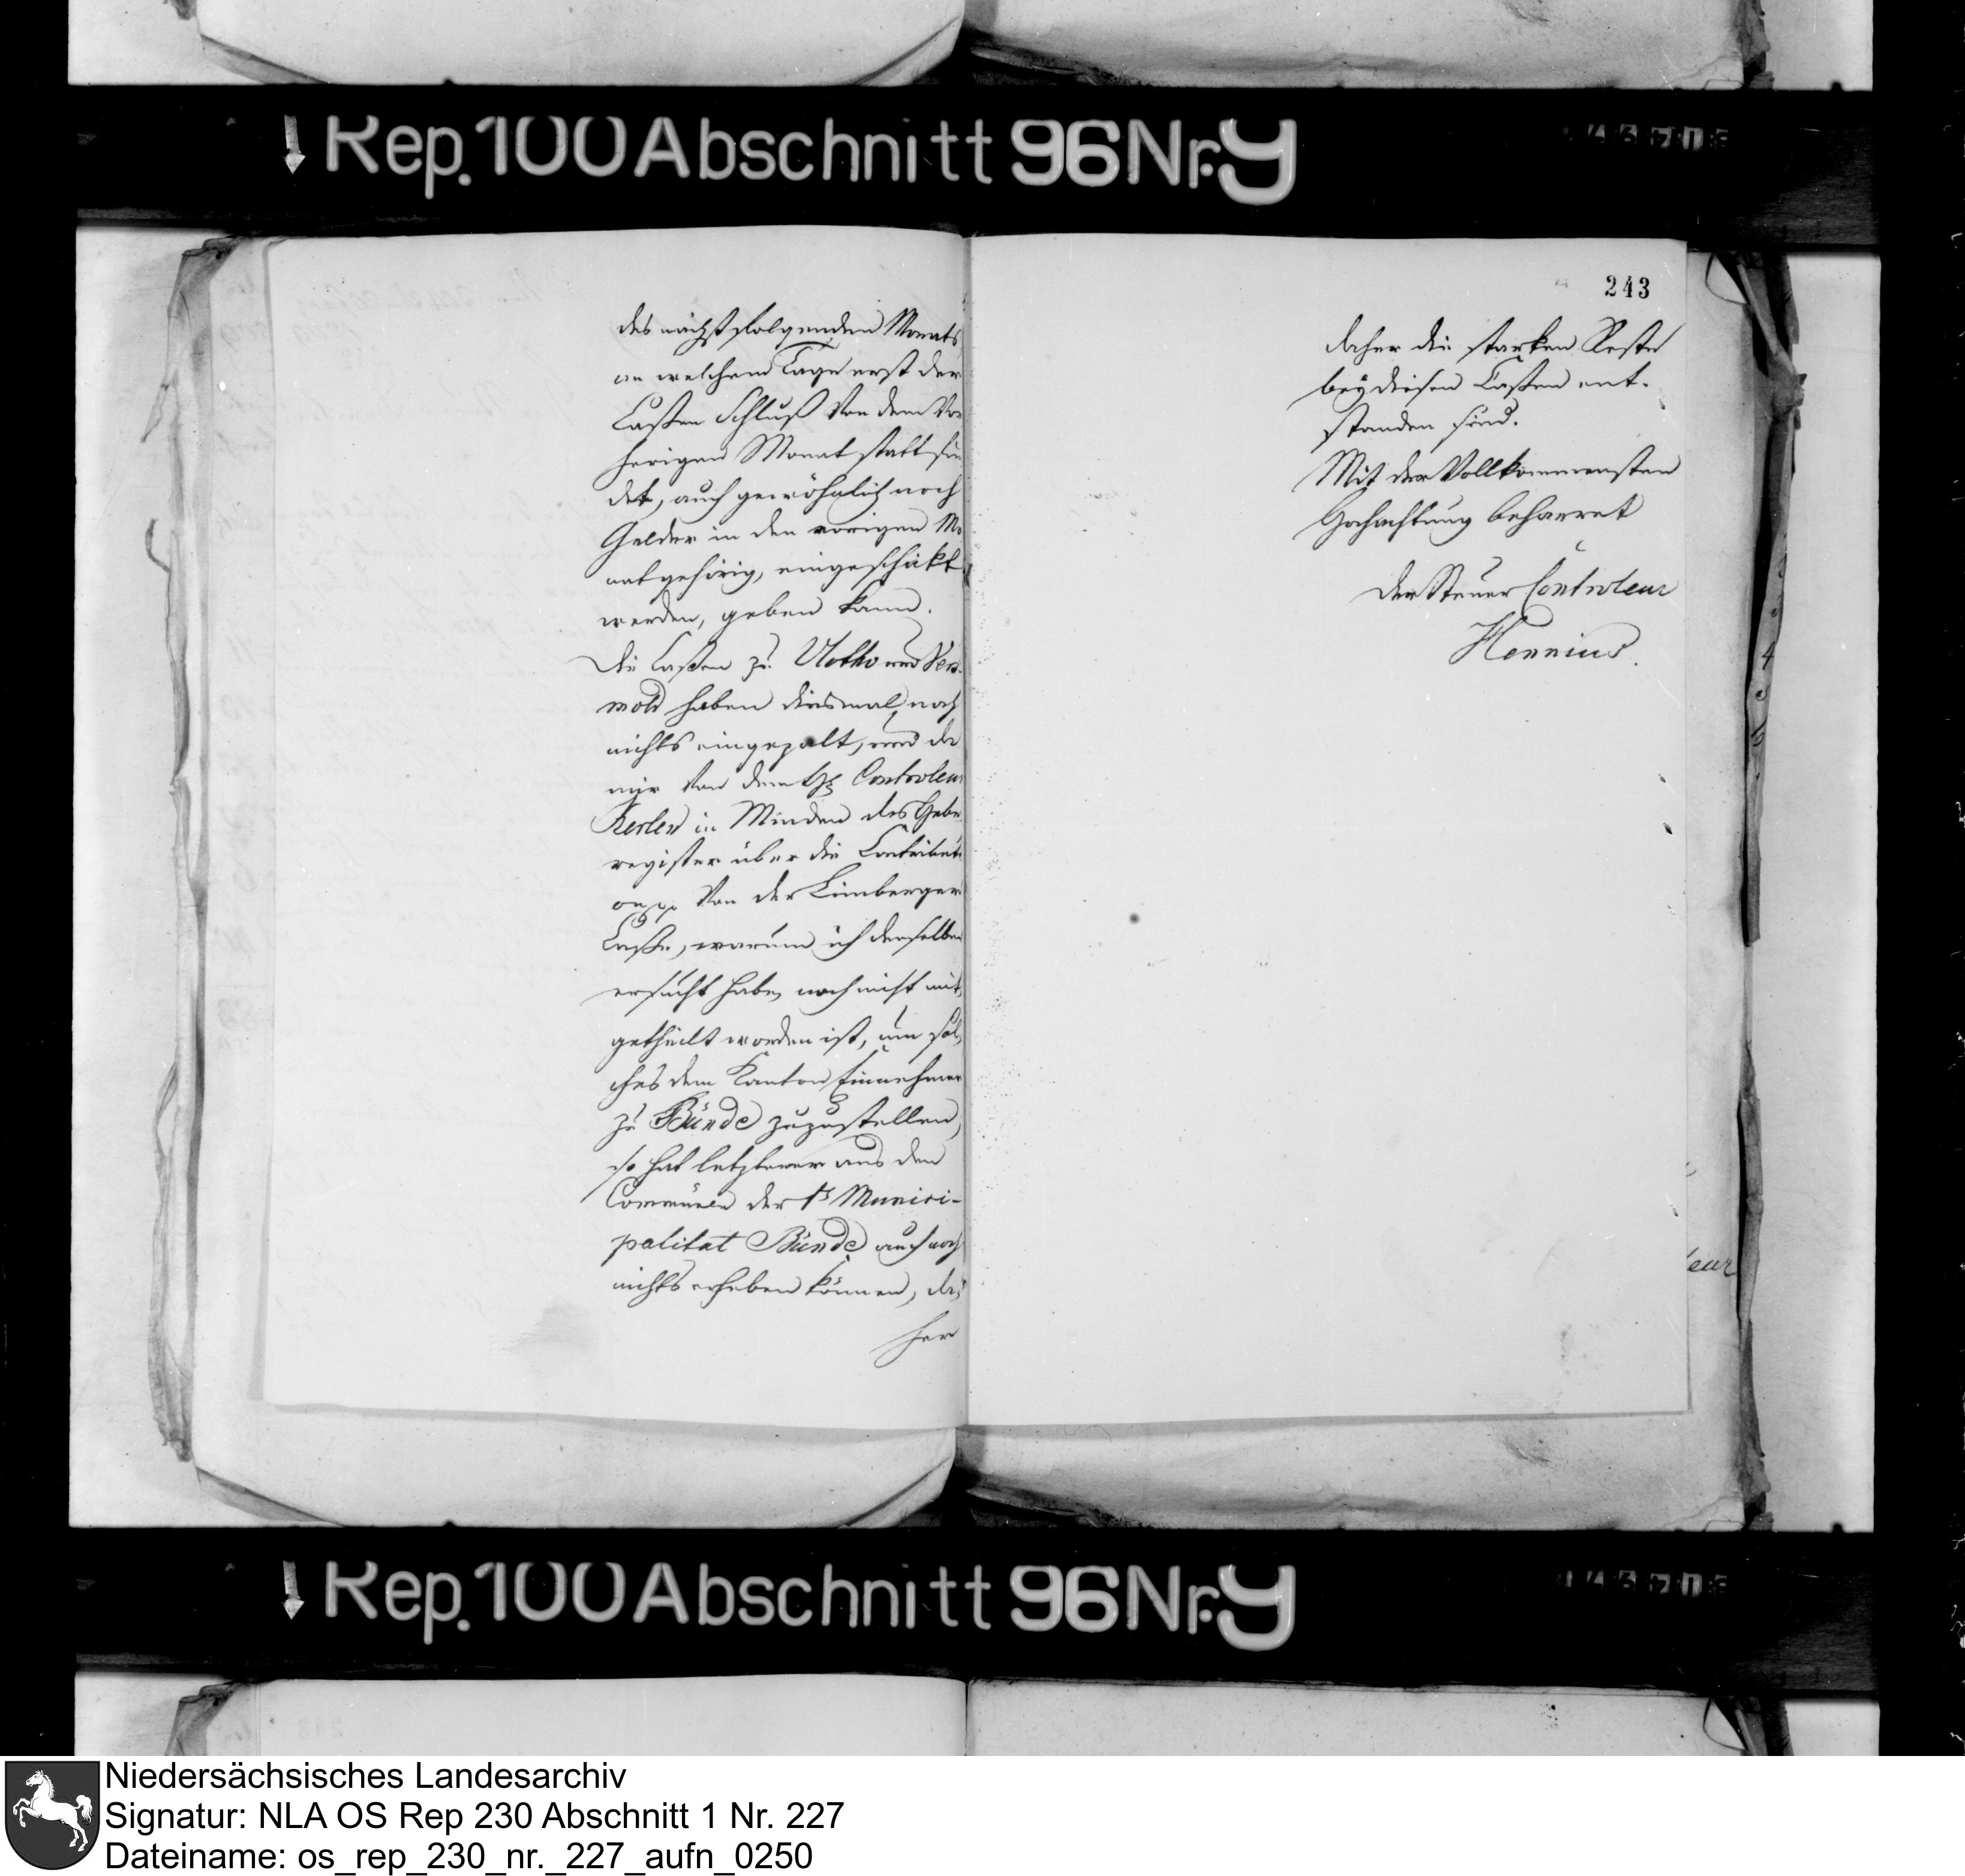 Rep. 100 Abschnitt 96 Nr. 9
des nächstfolgenden Monats
an welchem Tage erst der
Caßen Schluß von dem Vor
herigen Monat statt fin
det, auch gewöhnlich noch
Gelder in den vorigen Mo
nat gehörig, eingeschikt
werden, geben kann.
Die Caßen zu Vlotho und Vers-
mold haben diesmal noch
nichts eingezalt, und da
mir von dem H Controleur
in Minden das Hebe
register über die Contributi
on pp von der Limberger
Caße, warum ich denselben
ersucht habe, noch nicht mit
getheilt worden ist, um sol
ches dem Kanton Einnehmer
zu Bünde zuzustellen,
so hat letzterer aus den
Communen der Munici-
palitat Bünde auch noch
nichts erheben können, da
her
243
daher die starken Reste
bey diesen Caßen ent-
standen sind.
Mit der Vollkommensten
Hochachtung beharret
Der Steuer Controleur
Hennius.
eur
Rep. 100 Abschnitt 96 Nr. 9
Niedersächsisches Landesarchiv
Signatur: NLA OS Rep 230 Abschnitt 1 Nr. 227
Dateiname: os_rep_230_nr._227_aufn_0250